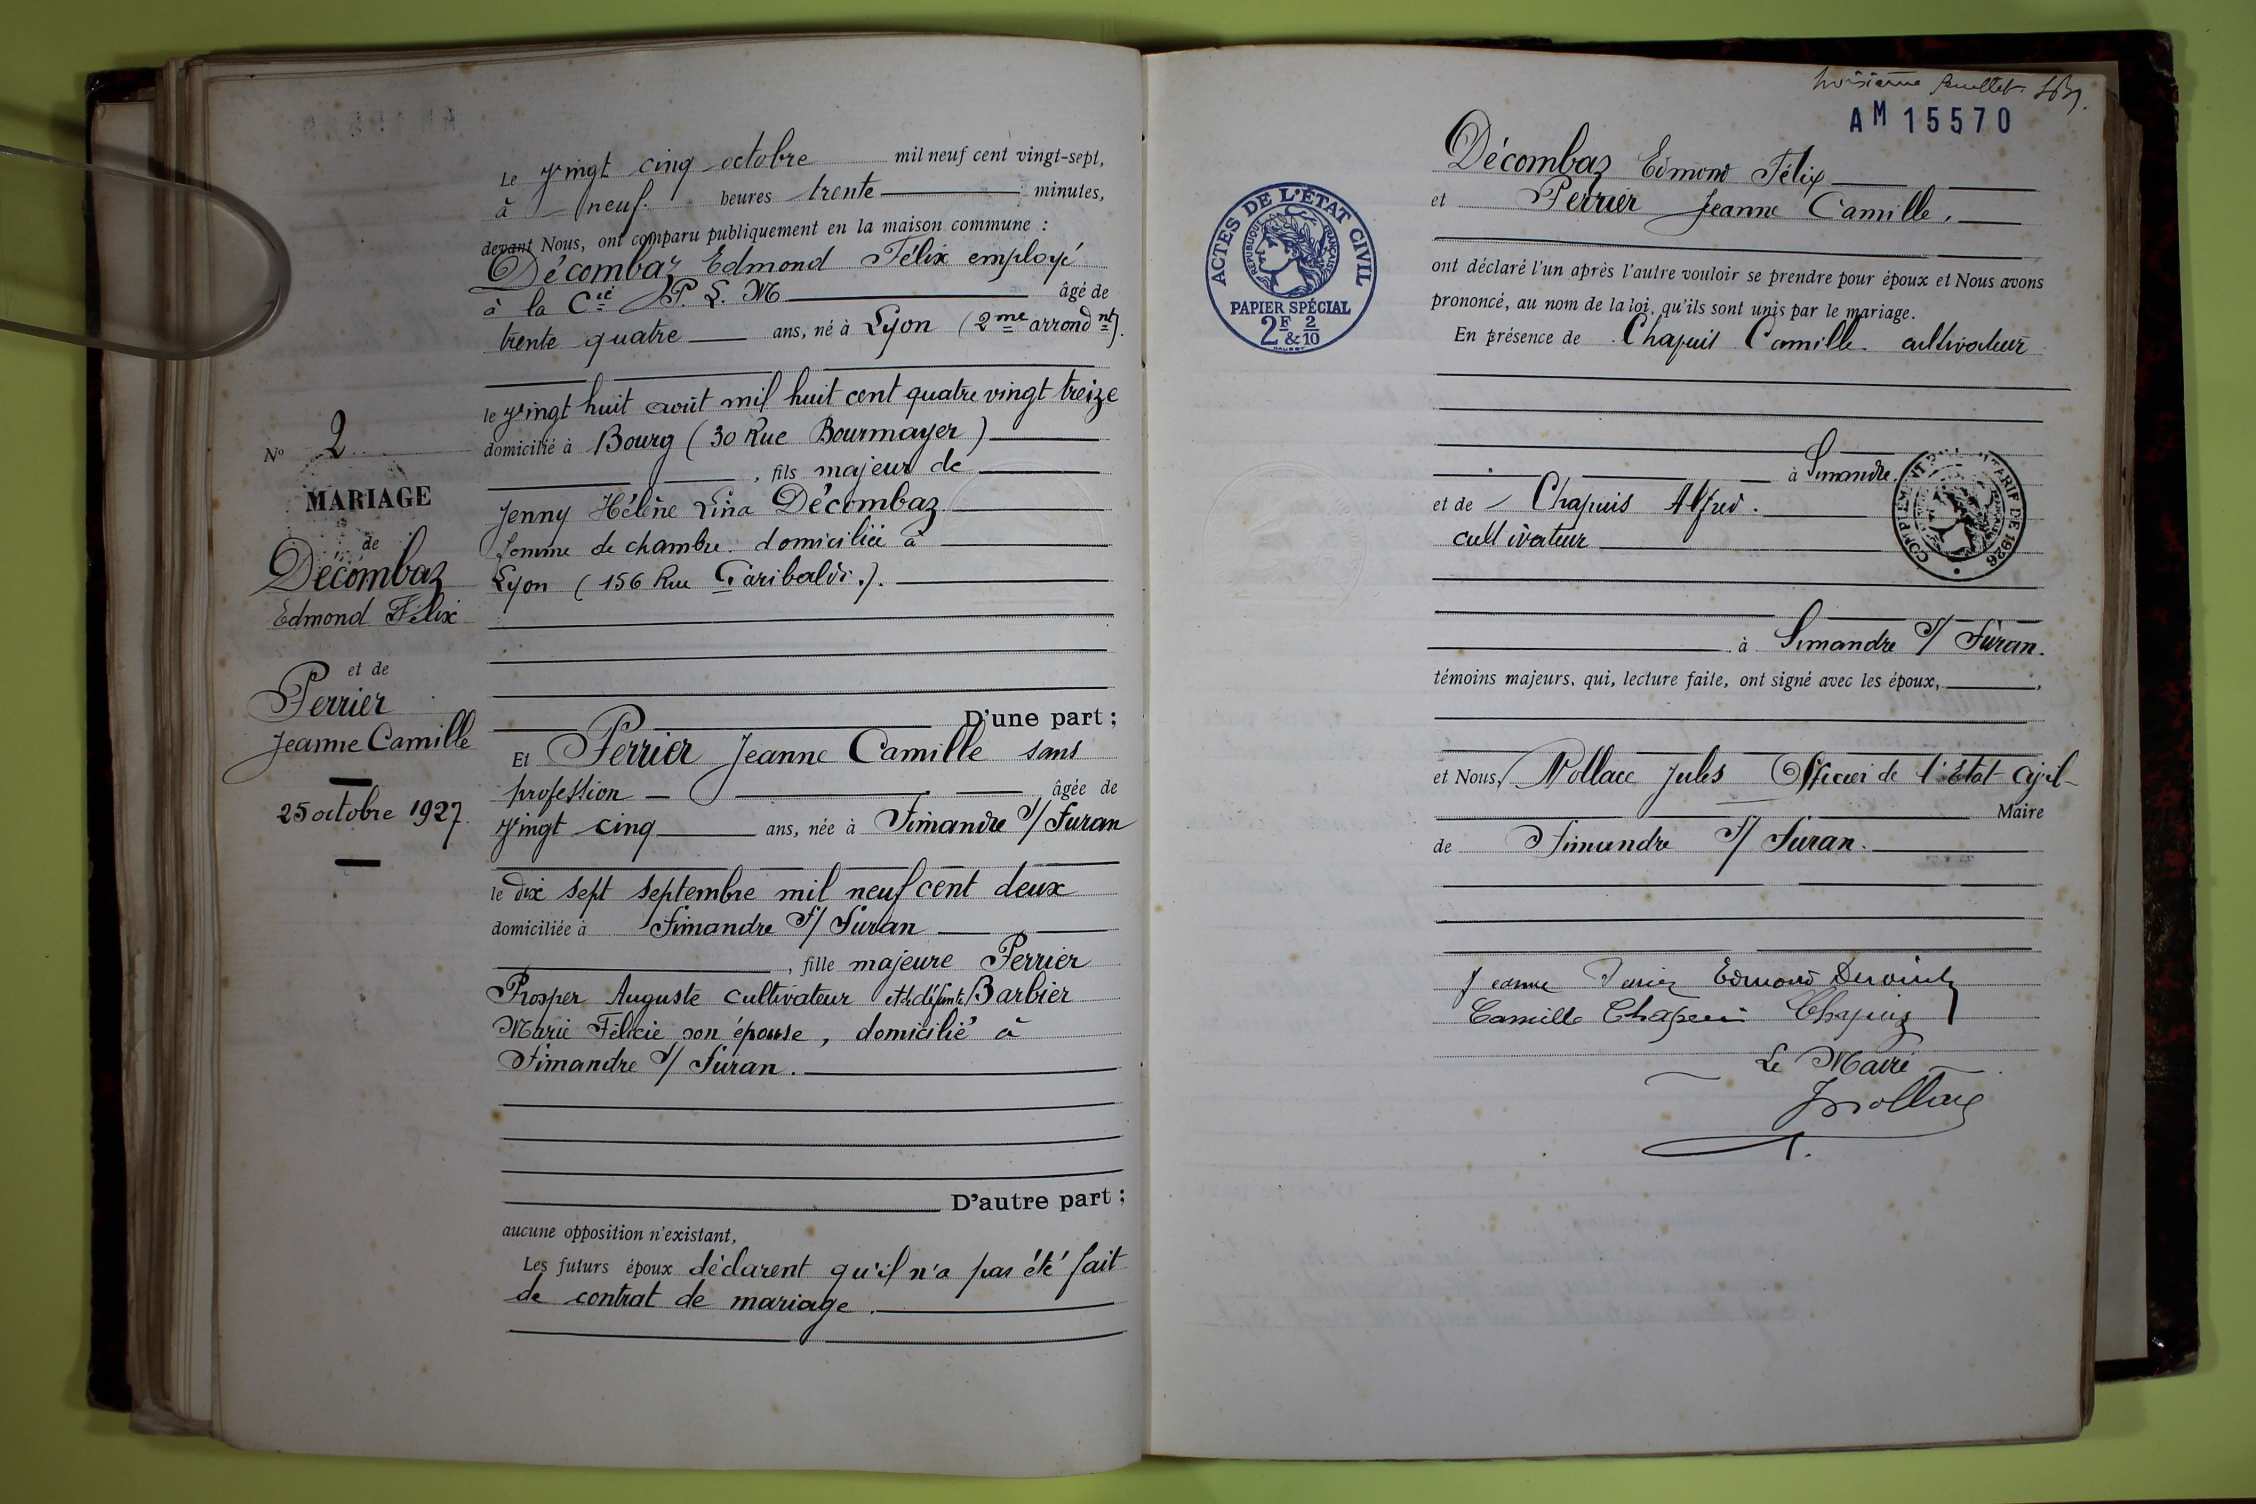 Le vingt cinq octobre mil neuf cent vingt-sept,
à neuf heures trente minutes,
devant Nous, ont comparu publiquement en la maison commune :
Décombaz Edmond Félix employé
à la Cie P. L. M âgé de
trente quatre ans, né à Lyon (2me arrondnt).
le vingt huit août mil huit cent quatre vingt treize
domicilié à Bourg (30 Rue Bourmayer)
, fils majeur de
Jenny Hélène Lina Décombaz
femme de chambre domiciliée à
Lyon (156 Rue Garibaldi.).
D'une part ;
Et Perrier Jeanne Camille sans
profession âgée de
vingt cinq ans, née à Simandre s/ Suran
le dix sept septembre mil neuf cent deux
domiciliée à Simandre s/ Suran
, fille majeure Perrier
Prosper Auguste cultivateur et de défunte Barbier
Marie Félicie son épouse, domicilié à
Simandre s/ Suran.
D'autre part ;
aucune opposition n'existant,
Les futurs époux déclarent qu'il n'a pas été fait
de contrat de mariage.
No 2
MARIAGE
de
Décombaz
Edmond Félix
et de
Perrier
Jeanne Camille
25 octobre 1927.
troisième feuillet.
AM 15570
ACTES DE L'ÉTAT CIVIL
RÉPUBLIQUE FRANÇAISE
PAPIER SPÉCIAL
2F & 2/10
Décombaz Edmond Félix
et Perrier Jeanne Camille,
ont déclaré l'un après l'autre vouloir se prendre pour époux et Nous avons
prononcé, au nom de la loi, qu'ils sont unis par le mariage.
En présence de Chapuis Camille cultivateur
à Simandre.
COMPLÉMENT TARIF DE 1926
et de Chapuis Alfred.
cultivateur
à Simandre s/ Suran.
témoins majeurs, qui, lecture faite, ont signé avec les époux,
et Nous, Jules Officier de l'Etat Civil
Maire
de Simandre s/ Suran.
Jeanne Perrier Edmond
Camille Chapuis Chapuis
Le Maire